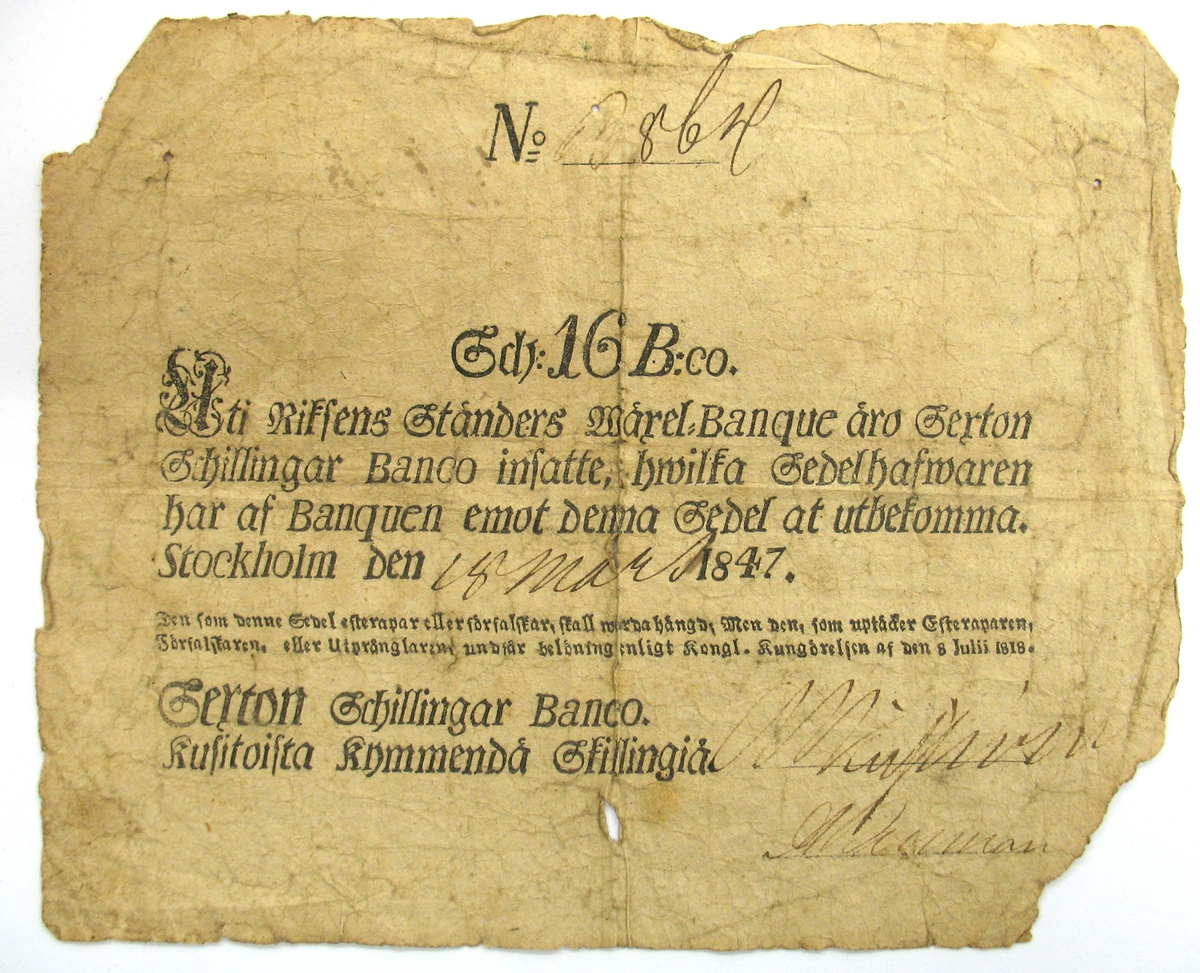 No 864
Sch: 16 B:co.
Uti Riksens Ständers Wäxel-Banque äro Sexton
Schillingar Banco insatte, hwilka Sedelhafwaren
har af Banquen emot denna Sedel at utbekomma.
Stockholm den 18 Mars 1847.
Den som denne Sedel efterapar eller förfalskar, skall warda hängd; Men den, som uptäcker Efteraparen,
Förfalskaren, eller Utprånglaren, undfår belöning enligt Kongl. Kungörelsen af den 8 Julii 1818.
Sexton Schillingar Banco.
Kusitoista Kymmendä Skillingiä.